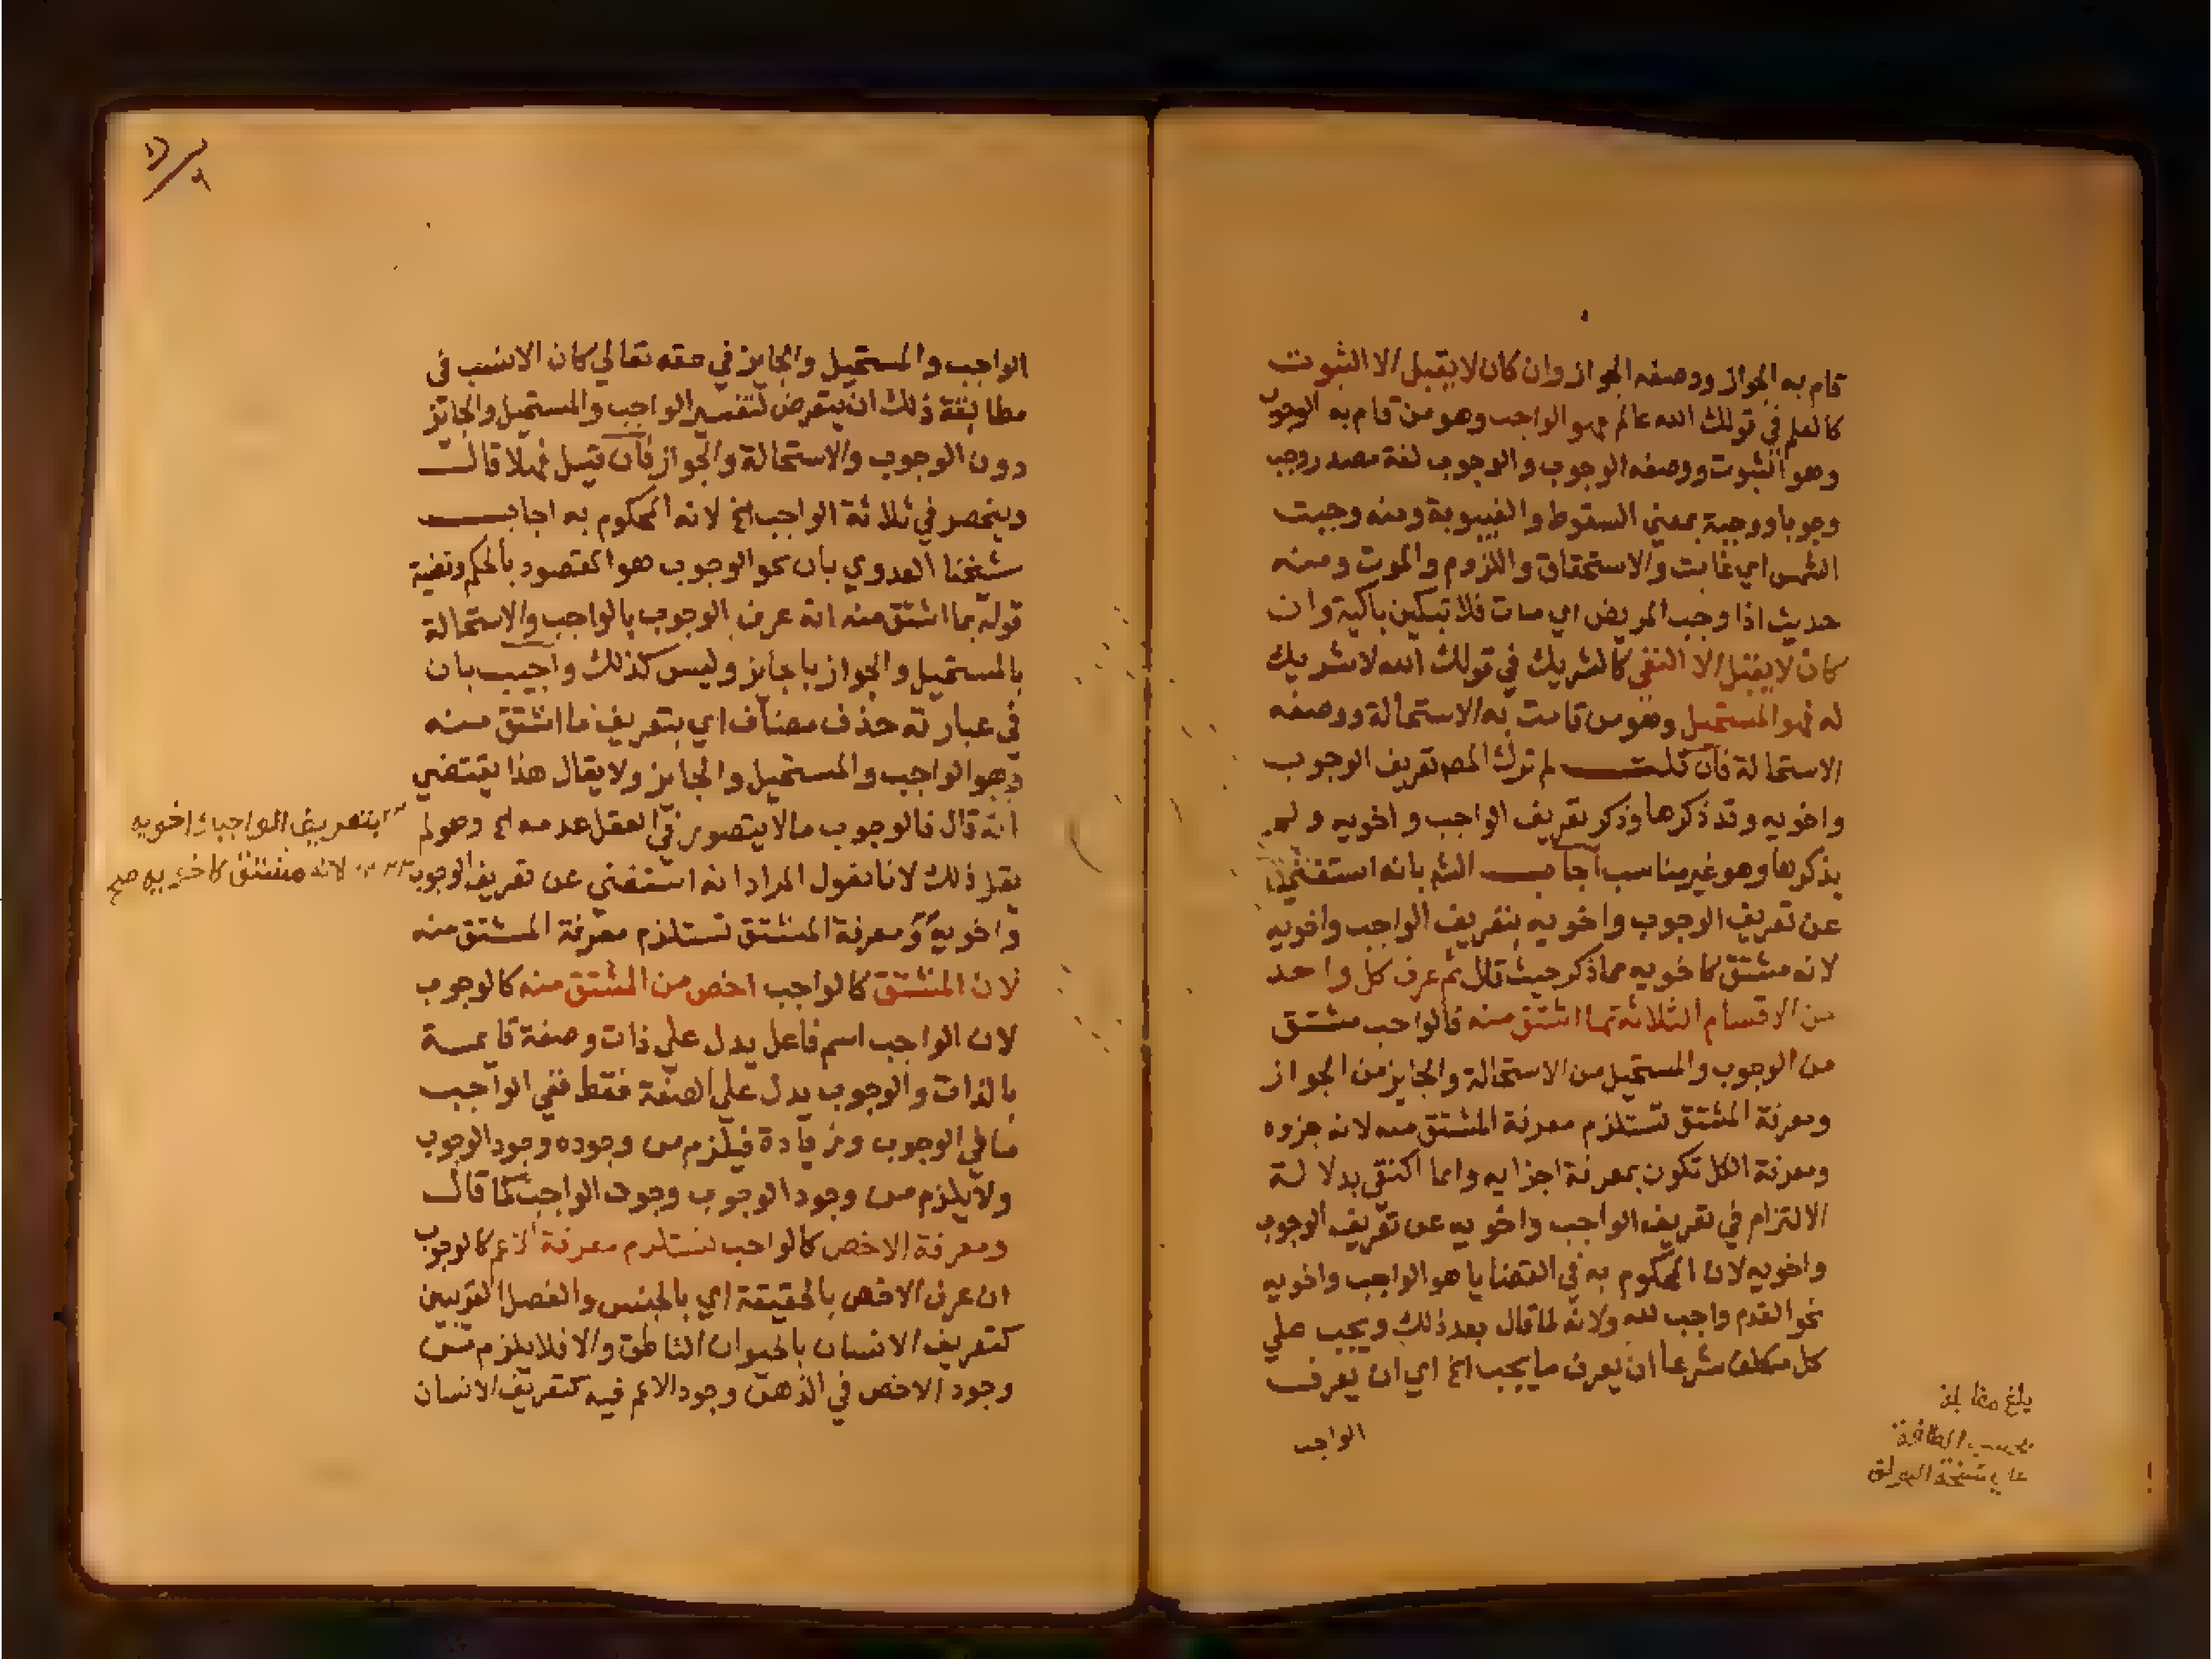 قام به الجواز ووصفه الجواز وان كان لا يقبل الا الثبوت
كالعلم في قولك الله عالم فهو الواجب وهو من قام به الوجوب
وهو الثبوت ووصفه الوجوب والوجوب لغة مصدر وجب
وجوبا ووجبة بمعني السقوط والغيبوبة ومنه وجبت
الشمس اي غابت والاستحقاق واللزوم والموت ومنه
حديث اذا وجب المريض اي مات فلا تبكين باكية وان
كان لا يقبل الا النفي كالشريك في قولك الله لا شريك
له فهو المستحيل وهو من قامت به الاستحالة ووصفه
الاستحالة فان قلت لم ترك المصم تعريف الوجوب
واخويه وقد ذكرها وذكر تعريف الواجب واخويه ولم
يذكرها وهو غير مناسب اجاب الشم بانه استغني
عن تعريف الوجوب واخويه بتعريف الواجب واخويه
لانه مشتق كاخويه مما ذكر حيث قال ثم عرف كل واحد
من الاقسام الثلاثة بما اشتق منه فالواجب مشتق
من الوجوب والمستحيل من الاستحالة والجايز من الجواز
ومعرفة المشتق تستلزم معرفة المشتق منه لانه جزوه
ومعرفة الكل تكون بمعرفة اجزايه وانما اكتفي بدلالة
الالتزام في تعريف الواجب واخويه عن تعريف الوجوب
واخويه لان المحكوم به في القضايا هو الواجب واخويه
نحو القدم واجب لله ولانه لما قال بعد ذلك ويجب علي
كل مكلف شرعا ان يعرف ما يجب الخ اي ان يعرف
الواجب
بلغ مقابلة
بحسب الطاقة
علي نسخة المولف
الواجب والمستحيل والجايز في حقه تعالي كان الانسب في
مطابقة ذلك ان يتعرض لتفسير الواجب والمستحيل والجائز
دون الوجوب والاستحالة والجواز فان قيل فهلا قال
وينحصر في ثلاثة الواجب الخ لانه المحكوم به اجاب
شيخنا العدوي بان نحو الوجوب هو المقصود بالحكم وقضية
قوله بما اشتق منه انه عرف الوجوب بالواجب والاستحالة
بالمستحيل والجواز باجايز وليس كذلك واجيب بان
في عبارته حذف مضاف اي بتعريف ما اشتق منه
وهو الواجب والمستحيل والجايز ولا يقال هذا يقتضي
انه قال فالوجوب ما لا يتصور في العقل عدمه الخ وهو لم
يقل ذلك لانا نقول المراد انه استغني عن تعريف الوجوب
واخويه ومعرفة المشتق تستلزم معرفة المشتق منه
لان المشتق كالواجب اخص من المشتق منه كالوجوب
لان الواجب اسم فاعل يدل علي ذات وصفة قايمة
بالذات والوجوب يدل علي الصفة فقط ففي الواجب
ما في الوجوب وزيادة فيلزم من وجوده وجود الوجوب
ولا يلزم من وجود الوجوب وجود الواجب كما قال
ومعرفة الاخص كالواجب تستلزم معرفة الاعم كالوجوب
ان عرف الاخص بالحقيقة اي بالجنس والفصل القريبين
كتعريف الانسان بالحيوان الناطق والا فلا يلزم من
وجود الاخص في الذهن وجود الاعم فيه كتعريف الانسان
بتعريف الواجب واخويه
لانه مشتق كاخويه صح